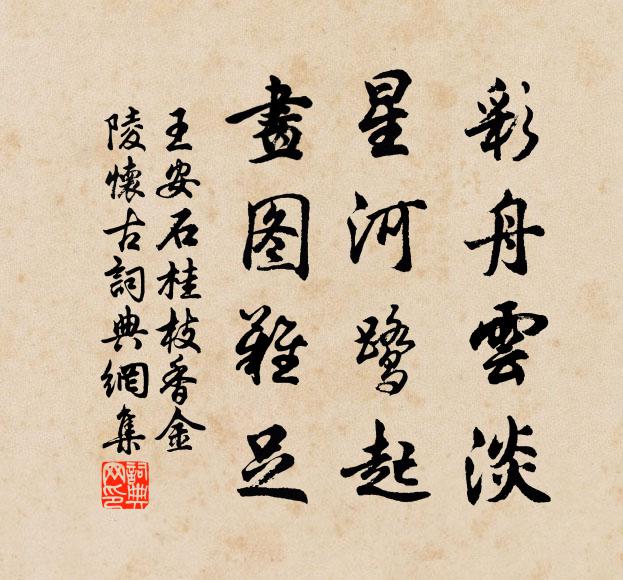 彩舟雲淡
星河鹭起
畫图難足
王安石桂枝香金
陵懷古詞典網集
詞典网印